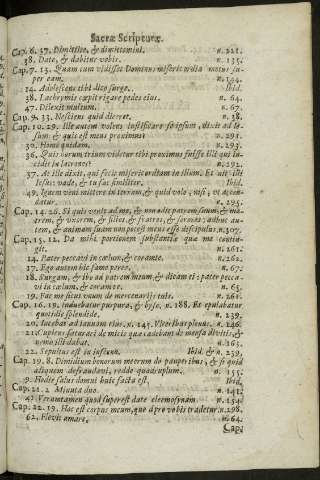 Sacræ Scripturæ.
Cap. 6. 37. Dimittite, & dimittemini. n. 221.
38. Date, & dabitur vobis. n. 135.
Cap. 7. 13. Quam cum vidisset Dominus misericordia motus super
eam. n. 144.
14. Adolescens tibi dico surge. Ibid.
38. Lachrymis cæpit rigare pedes eius. n. 64.
47. Dilexit multum. n. 67.
Cap. 9. 33. Nesciens quid diceret. n. 38.
Cap. 10. 29. Ille autem volens iustificare seipsum, dixit ad Iesum:
& quis est meus proximus n. 291.
30. Homo quidam. n. 293.
36. Quis horum trium videtur tibi proximus fuisse illi qui incidit
in latrones? n. 291.
37. At ille dixit, qui fecit misericordiam in illum. Et ait illi
Iesus: vade, & tu fac similiter. Ibid.
49. Ignem veni mittere in terram, & quid volo, nisi, vt accendatur.
n. 295.
Cap. 14. 26. Si quis venit ad me, & non odit patrem suum, & matrem,
& vxorem, & filios, & fratres, & sorores; adhuc autem,
& animam suam non potest meus esse discipulus. n. 307.
Cap. 15. 12. Da mihi portionem substantiæ quæ me contingit.
n. 261.
14. Pater peccavi in cælum, & coram te. n. 262.
17. Ego autem hic fame pereo. n. 67.
18. Surgam, & ibo ad patrem meum, & dicam ei: pater peccavi
in cælum, & coram te. n. 65.
19. Fac me sicut vnum de mercenarijs tuis. n. 261.
Cap. 16. 19. induebatur purpura, & bysso, n. 188. Et epulabatur
quotidie splendide. n. 239.
20. Iacebat ad ianuam eius. n. 145. Vlceribus plenus. n. 246.
21. Cupiens saturari de micis quæ cadebant de mensa divitis, &
nemo illi dabat. n. 363.
22. Sepultus est in inferno. Ibid. & n. 259.
Cap. 19. 8. Dimidium bonorum meorum do pauperibus; & si quid
aliquem defraudavi, reddo quadruplum. n. 155.
9. Hodie salus domui huic facta est. Ibid.
Cap. 21. 2 Minuta duo. n. 141.
41. Veruntamen quod superest date eleemosynam n. 154.
Cap. 22. 19. Hoc est corpus meum, quod pro vobis tradetur. n. 298.
62. Flevit amare. n. 64.
Cap.